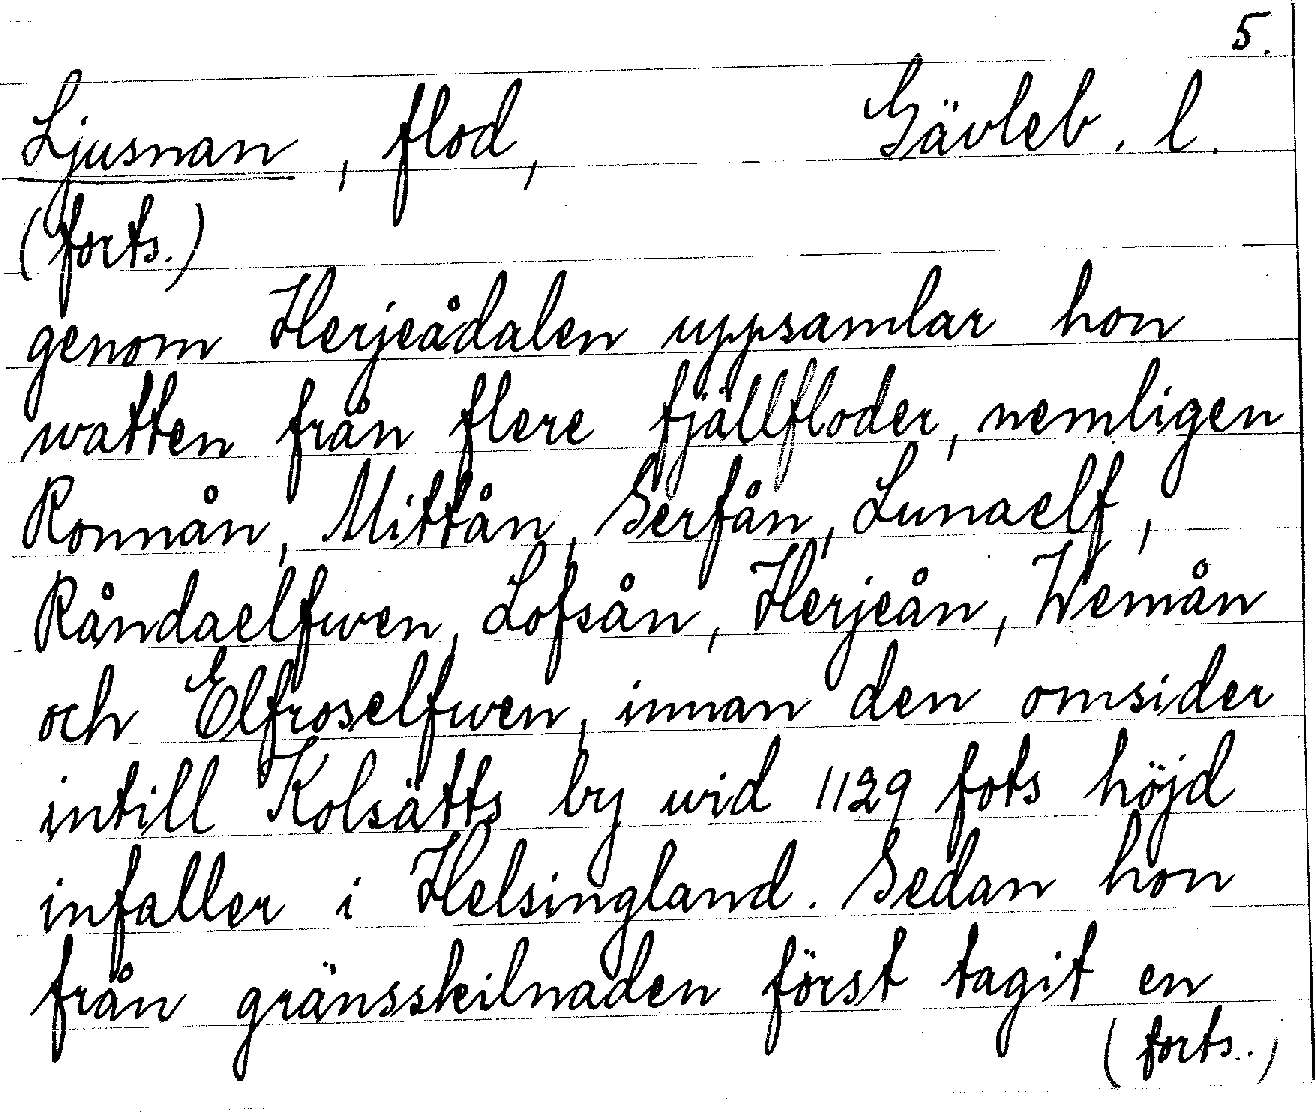 5.
Ljusnan, flod, Gävleb. l.
(forts.)
genom Herjeådalen uppsamlar hon
watten från flere fjällfloder, nemligen
Ronnån, Mittån, Serfån, Lunaelf,
Råndaelfwen, Lofsån, Herjeån, Wemån
och Elfroselfwen, innan den omsider
intill Kolsätts by wid 1129 fots höjd
infaller i Helsingland. Sedan hon
från gränsskilnaden först tagit en
(forts..)